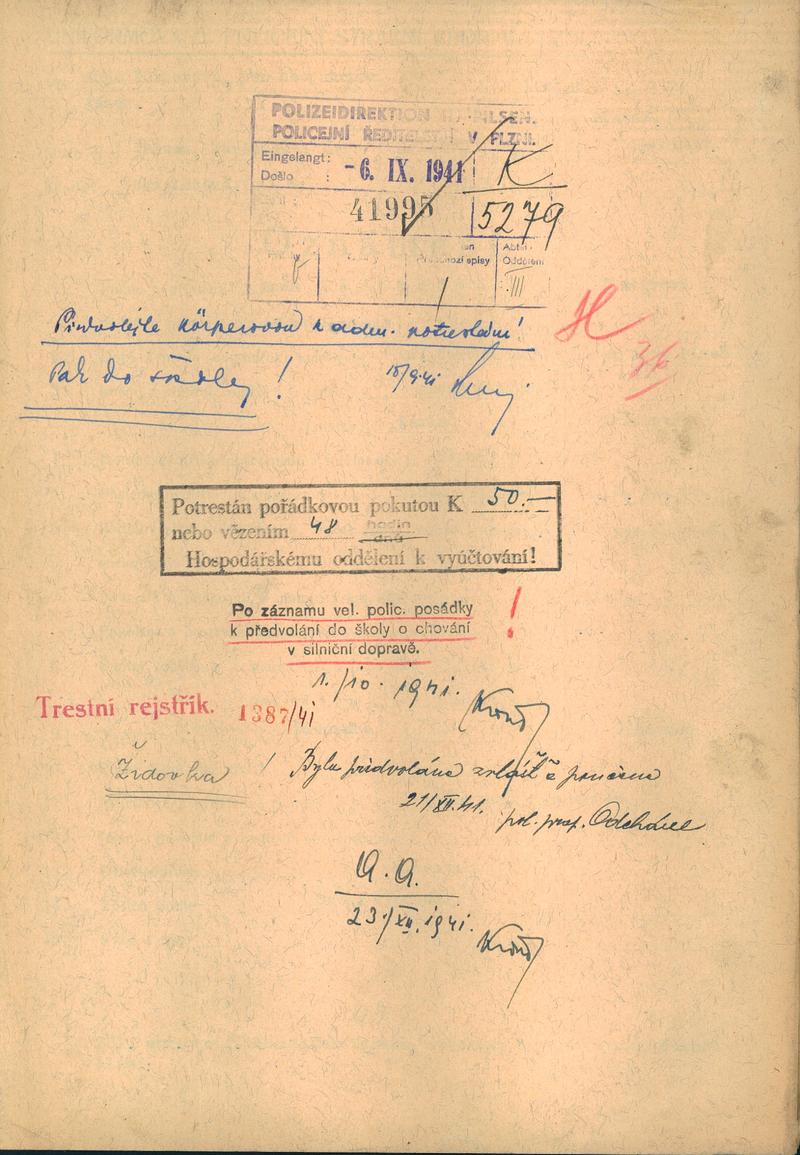 POLIZEIDIREKTION IN PILSEN.
POLICEJNÍ ŘEDITELSTVÍ V PLZNI.
Eingelangt:
Došlo :
-6. IX. 1941
K
41995
5279
Předchozí spisy
Abt.
Oddělení
III
Předvolejte Körperovou k adm. potrestání!
H
36
Pak do školy!
15/9.41
Potrestán pořádkovou pokutou K 50.—
nebo vězením 48 hodin
dnů
Hospodářskému oddělení k vyúčtování!
Po záznamu vel. polic. posádky !
k předvolání do školy o chování
v silniční dopravě.
1./10. 1941.
Trestní rejstřík. 1387/41
Židovka !
Byla předvolána zvlášť a poučena
21/XII.41.
pol. prap.
a. a.
23./XII. 1941.